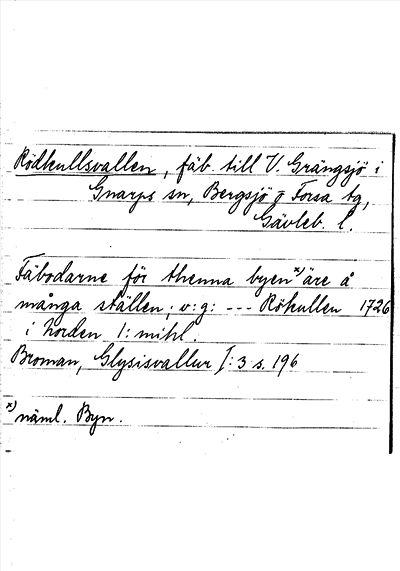 Rödkullsvallen, fäb. till V. Grängsjö i
Gnarps sn, Bergsjö o Forsa tg,
Gävleb. l.
Fäbodarne för thenna byen x) äre å
många ställen; v: g: --- Rökullen 1726
i norden 1: mihl.
Broman, Glysisvallur I: 3 s. 196
x) näml. Byn.